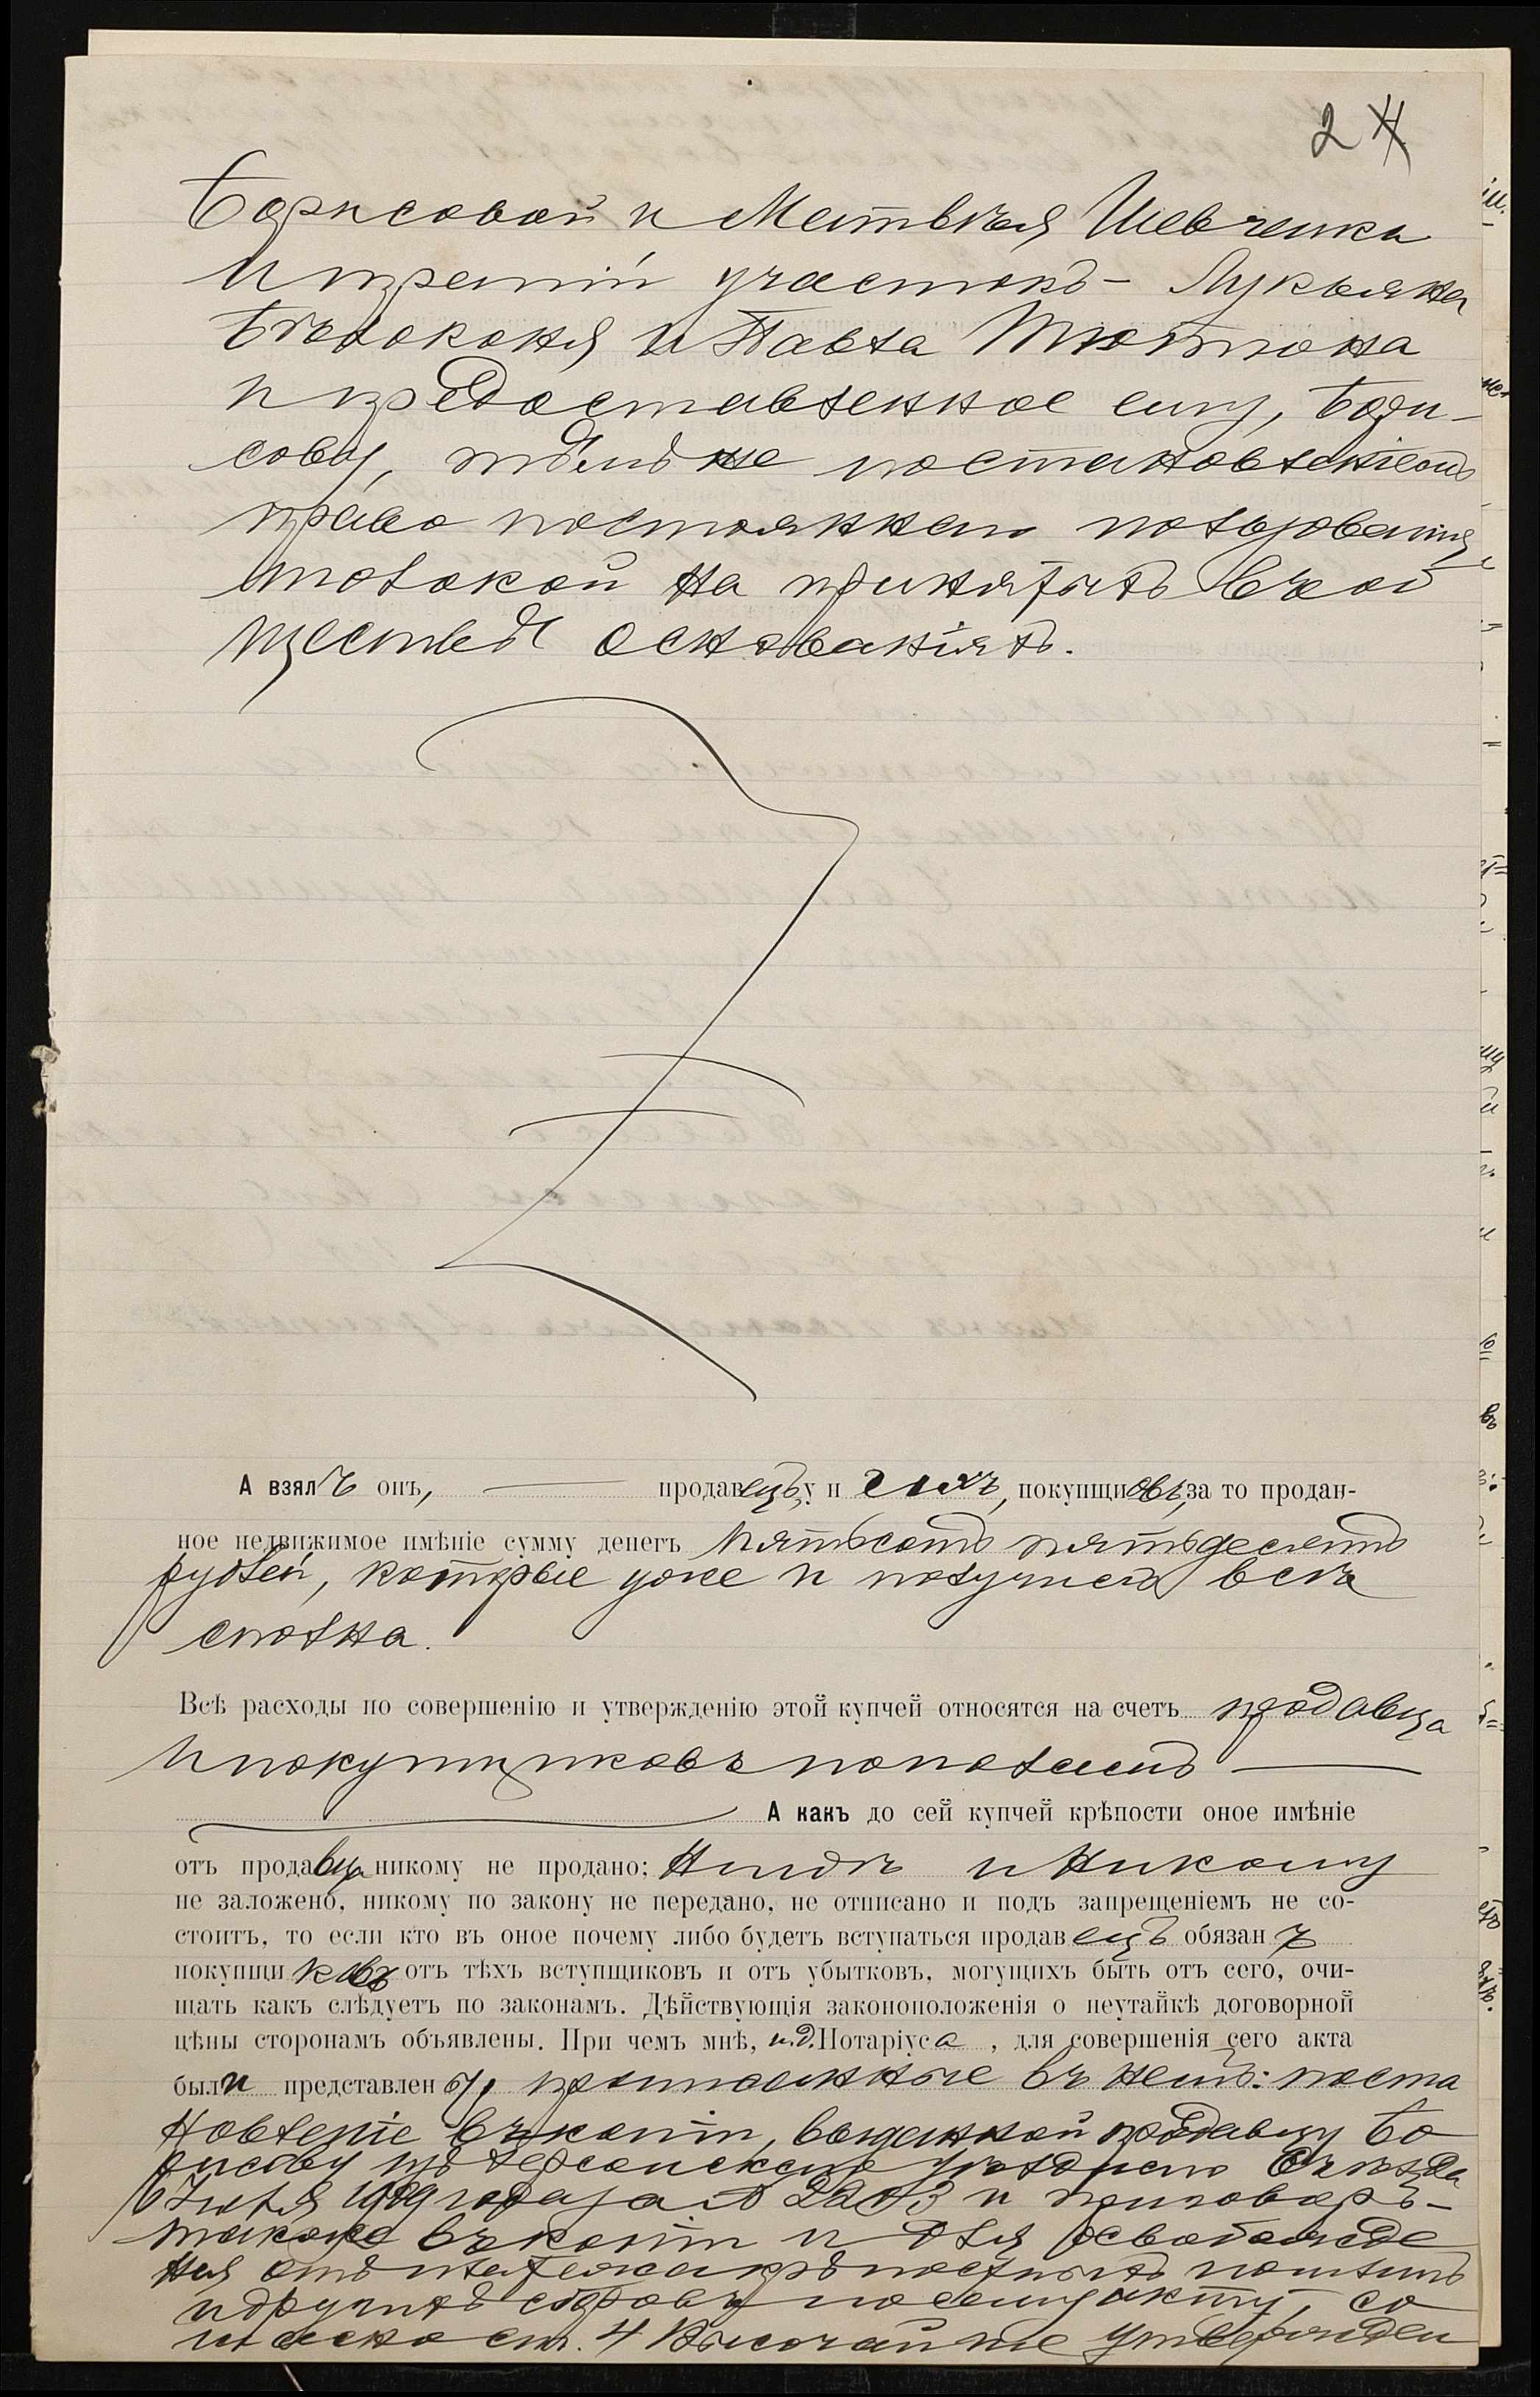 2 4
Борисовой и Матвѣя Шевченка
и третій участокъ – Лукьяна
Бѣлоконя и Павла Тютюна
и предоставленное ему, Бори-
сову, тѣмъ же постановленіемъ
право постояннаго пользованія
толокой на принятыхъ въ об
ществѣ основаніяхъ.
А взялъ онъ, продавецъ, у нихъ, покупщиковъ, за то продан-
ное недвижимое имѣніе сумму денегъ пятьсотъ пятьдесятъ
рублей, которые уже и получилъ всѣ
сполна.
Всѣ расходы по совершенію и утвержденію этой купчей относятся на счетъ продавца
и покупщиковъ пополамъ
А какъ до сей купчей крѣпости оное имѣніе
отъ продавца никому не продано; нигдѣ и никому
не заложено, никому по закону не передано, не отписано и подъ запрещеніемъ не со-
стоитъ, то если кто въ оное почему либо будетъ вступаться продавецъ обязанъ
покупщиковъ отъ тѣхъ вступщиковъ и отъ убытковъ, могущихъ быть отъ сего, очи-
щать какъ слѣдуетъ по законамъ. Дѣйствующія законоположенія о неутайкѣ договорной
цѣны сторонамъ объявлены. При чемъ мнѣ, и.д. Нотаріуса, для совершенія сего акта
были представлены, прописанные въ немъ: поста
новленіе въ копіи, выданной продавцу Бо
рисову изъ Херсонскаго уѣзднаго Съѣзда
Іюля 1909 года за № 2203 и приговоръ-
также въ копіи и для освобожде
нія отъ платежа крѣпостныхъ пошлинъ
и другихъ сборовъ по сему акту, со
гласно ст. 4 Высочайше утвержден